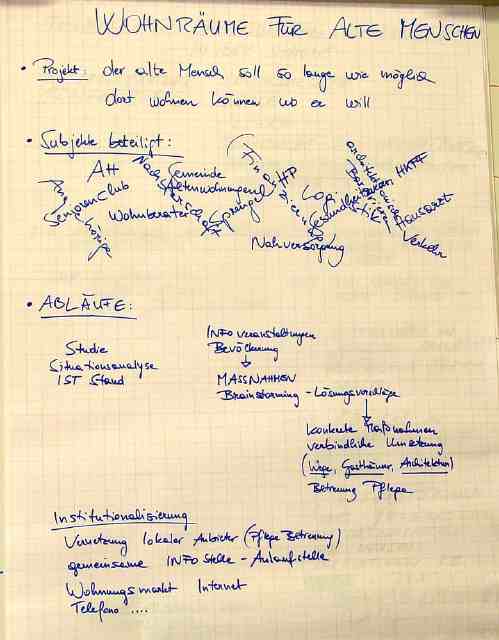 WOHNRÄUME FÜR ALTE MENSCHEN
• Projekt: der alte Mensch soll so lange wie möglich
dort wohnen können wo er will
• Subjekte beteiligt:
AH
Nachbarschaft
Gemeinde
Altenwohnungen
Sprengel
HP
Logistik
Gesundheitswesen
architektonische
Barrieren
HKFF
Hausarzt
Verkehr
Angehörige
SeniorenClub
Wohnberater
Finanzierung
Nahversorgung
• ABLÄUFE:
Studie
Situationsanalyse
IST Stand
INFOveranstaltungen
Bevölkerung
MASSNAHMEN
Brainstorming - Lösungsvorschläge
konkrete Maßnahmen
verbindliche Umsetzung
(Wege, Gasthäuser, Architektur)
Betreuung Pflege
Institutionalisierung
Vernetzung lokaler Anbieter (Pflege Betreuung)
gemeinsame INFO Stelle - Anlaufstelle
Wohnungsmarkt Internet
Telefono ....